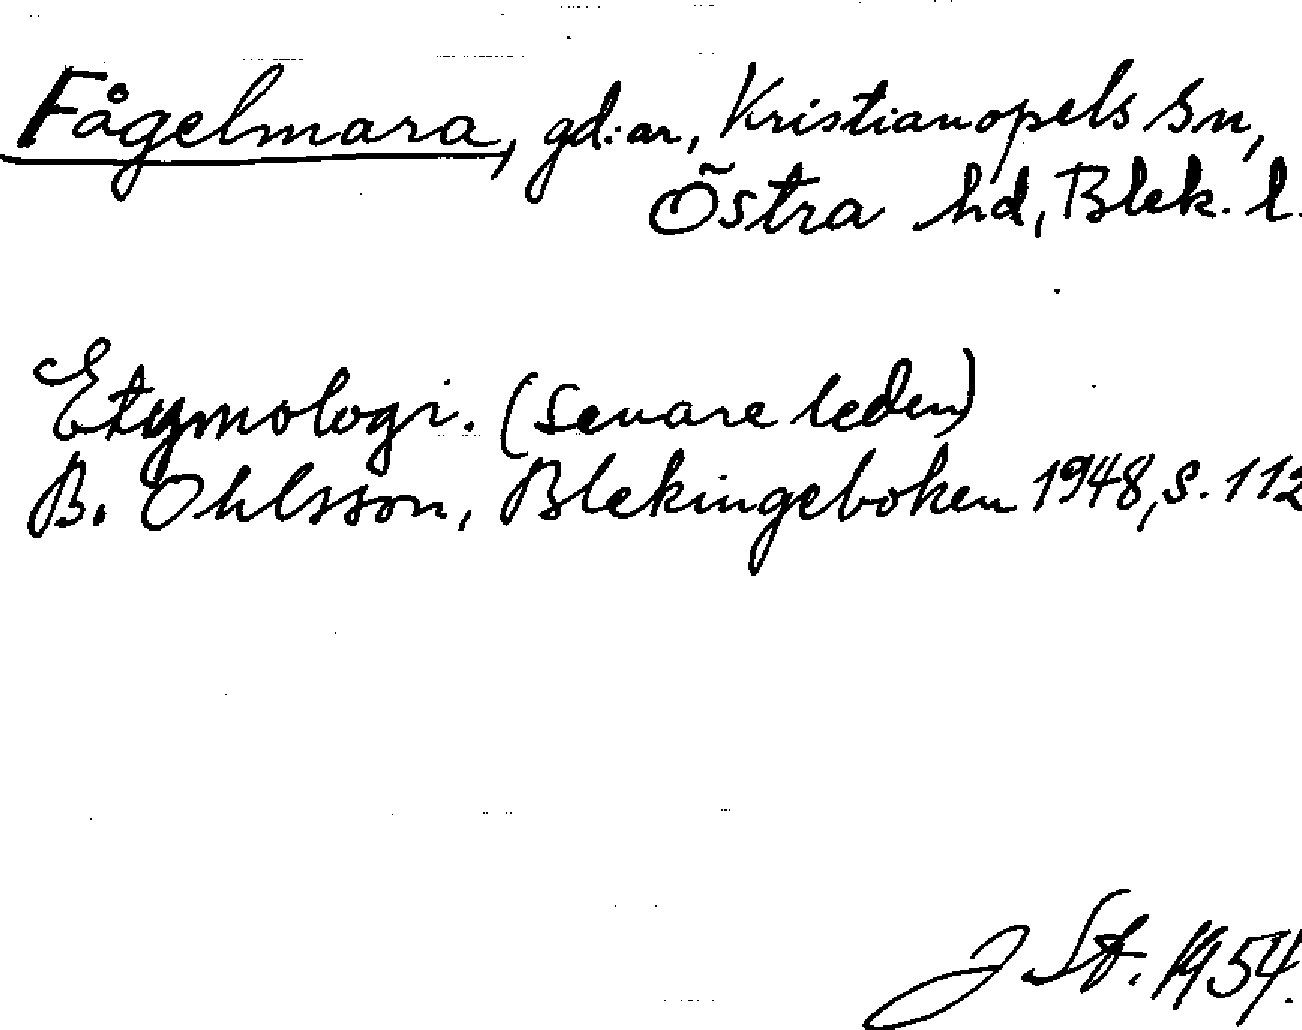 Fågelmara, gd:ar, Kristianopels sn,
Östra hd, Blek. l.
Etymologi. (Senare leden)
B. Ohlsson, Blekingeboken 1948, s. 112
J St. 1954.